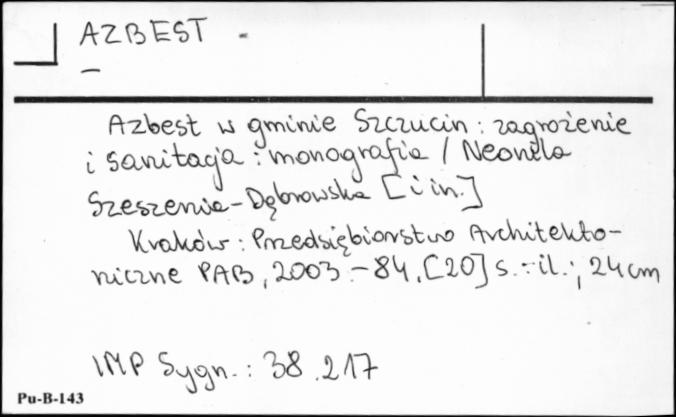 AZBEST -
–
Azbest w gminie Szczucin : zagrożenie
i sanitacja : monografia / Neonila
Szeszenia-Dąbrowska [i in.]
Kraków : Przedsiębiorstwo Architekto-
niczne PAB, 2003.- 84, [20] s. : il. ; 24 cm
IMP Sygn. : 38.217
Pu-B-143